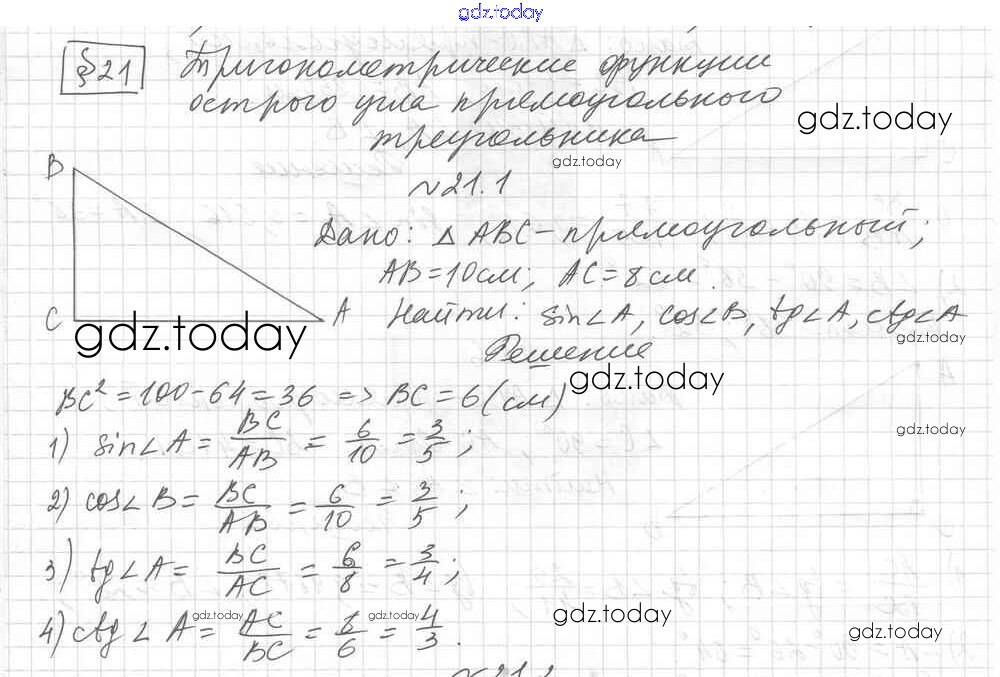 gdz.today
§21 Тригонометрические функции
острого угла прямоугольного
gdz.today
треугольника
gdz.today
№21.1
B
Дано: △ ABC - прямоугольный;
AB = 10см; AC = 8см.
C
A
Найти: sin∠A, cos∠B, tg∠A, ctg∠A
gdz.today
gdz.today
Решение
gdz.today
BC² = 100 - 64 = 36 => BC = 6 (см)
1) sin∠A = BC/AB = 6/10 = 3/5;
gdz.today
2) cos∠B = BC/AB = 6/10 = 3/5;
3) tg∠A = BC/AC = 6/8 = 3/4;
gdz.today
gdz.today
gdz.today
4) ctg∠A = AC/BC = 8/6 = 4/3.
gdz.today